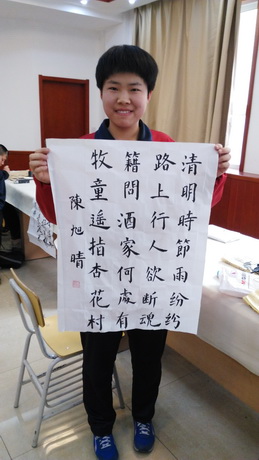 清明時節雨紛紛
路上行人欲断魂
籍問酒家何處有
牧童遥指杏花村
陳旭晴